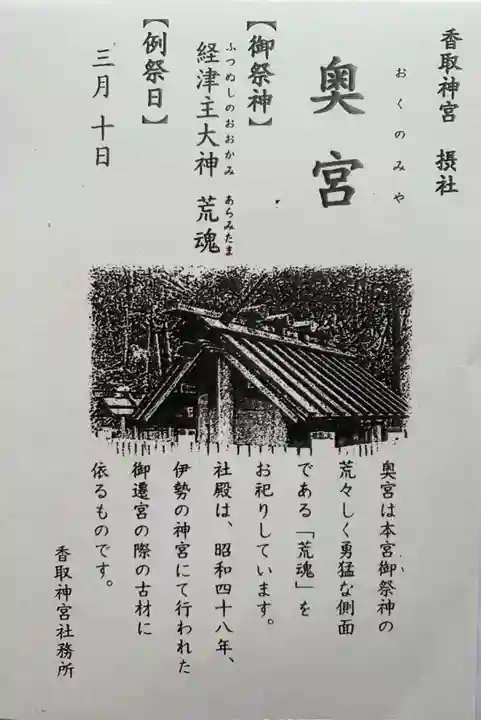 香取神宮 摂社
おくのみや
奥宮
【御祭神】
ふつぬしのおおかみ あらみたま
経津主大神 荒魂
【例祭日】
三月十日
奥宮は本宮御祭神の
荒々しく勇猛な側面
である「荒魂」を
お祀りしています。
社殿は、昭和四十八年、
伊勢の神宮にて行われた
御遷宮の際の古材に
依るものです。
香取神宮社務所